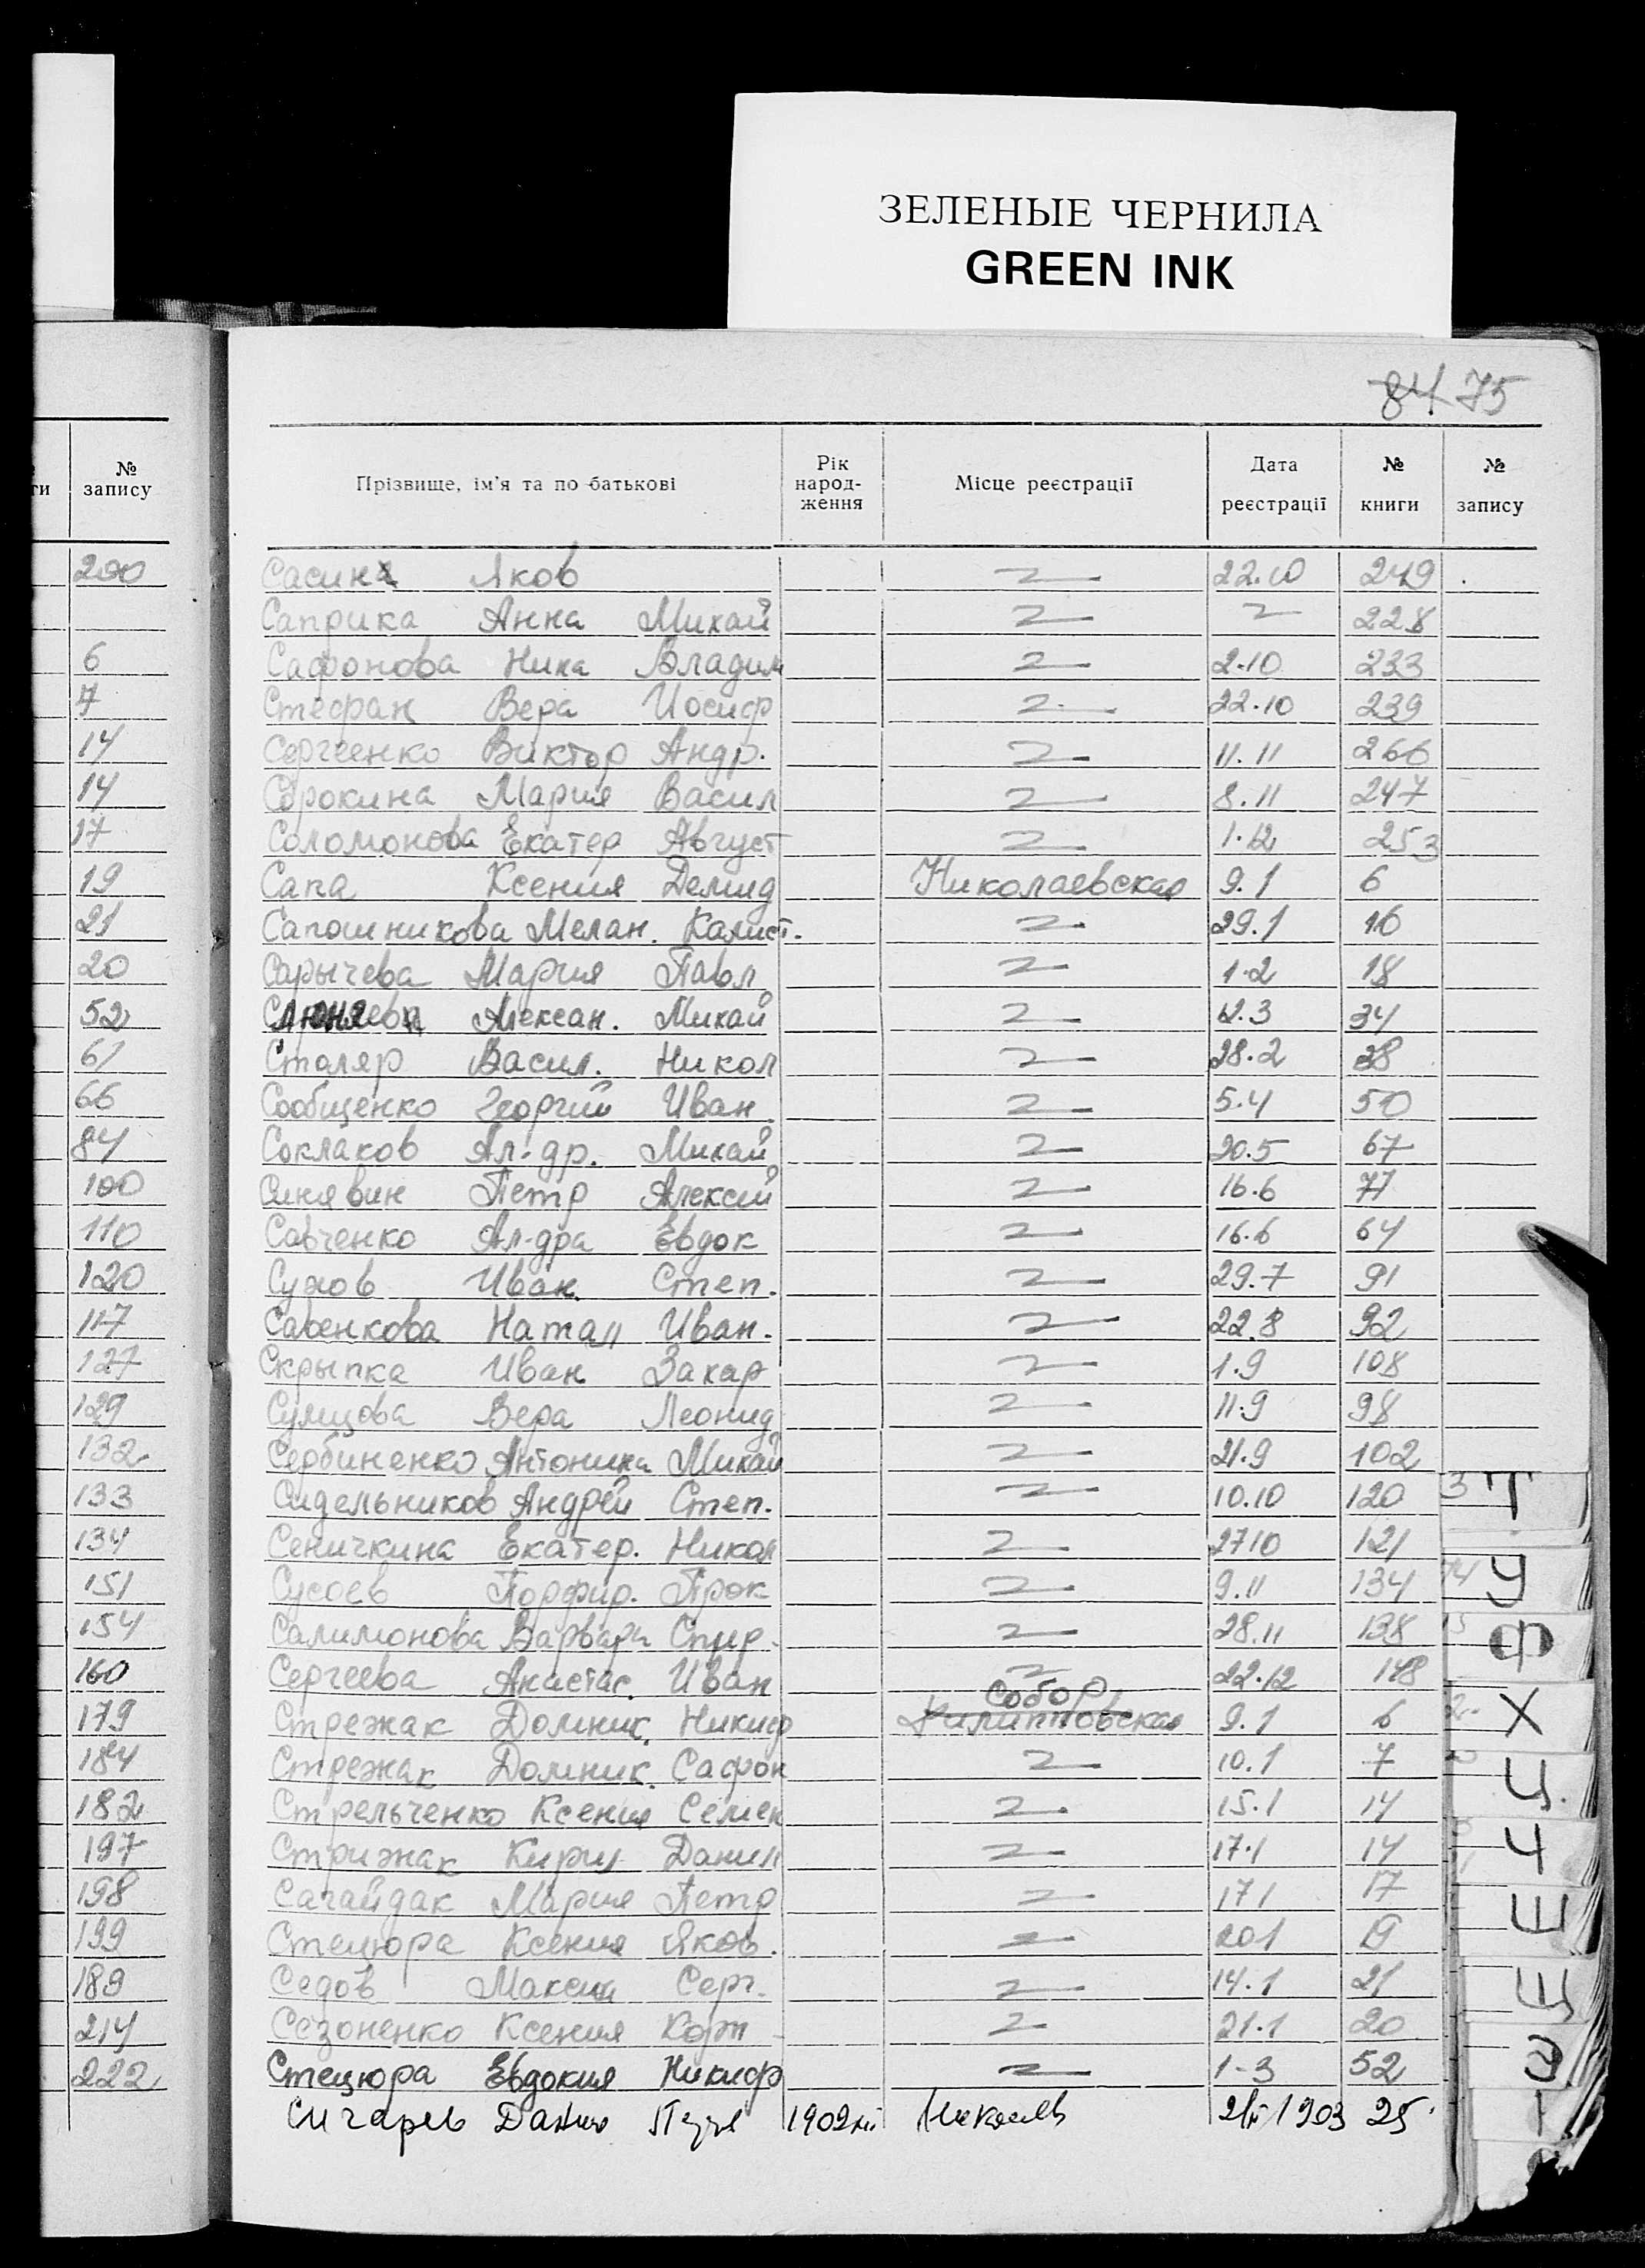 ЗЕЛЕНЫЕ ЧЕРНИЛА
GREEN INK
84 75
№ запису
Прізвище, ім'я та по батькові Рік народ-ження Місце реєстрації Дата реєстрації № книги № запису
200
6
7
14
14
17
19
21
20
52
61
66
84
100
110
120
117
127
129
132
133
134
151
154
160
179
184
182
197
198
199
189
214
222
Сасина Яков 22.10 249
Саприка Анна Михай 228
Сафонова Ника Владим 2.10 233
Стефан Вера Иосиф 22.10 239
Сергеенко Виктор Андр. 11.11 266
Сорокина Мария Васил 8.11 247
Соломонова Екатер Август 1.12 253
Сапа Ксения Демид Николаевская 9.1 6
Сапошникова Мелан. Калист. 29.1 16
Сарычева Мария Павл 1.2 18
Алексан. Михай 12.3 34
Столяр Васил. Никол 28.2 28
Сообщенко Георгий Иван. 5.4 50
Соклаков Ал-др. Михай 20.5 67
Синявин Петр Алексей 16.6 77
Савченко Ал-дра Евдок 16.6 64
Сухов Иван. Степ. 29.7 91
Савенкова Натал Иван. 22.8 92
Скрыпка Иван Захар 1.9 108
Сумцова Вера Леонид 11.9 98
Сербиненко Антонина Михай 21.9 102
Сидельников Андрей Степ. 10.10 120
Сеничкина Екатер. Никол 2710 121
Сусоев Порфир. Прок 9.11 134
Салимонова Варвара Спир. 28.11 138
Сергеева Анастас. Иван 22.12 148
Собор.
Стрежак Домник. Никиф Филипповская 9.1 6
Стрежак Домник. Сафон 10.1 7
Стрельченко Ксения Семен 15.1 14
Стрижак Кирил Данил 17.1 14
Сагайдак Мария Петр 171 17
Стецюра Ксения Яков. 201 19
Седов Максим Серг. 14.1 21
Сезоненко Ксения Корн 21.1 20
Стецюра Евдокия Никиф 1-3 52
1902 1903 25
Т
У
Ф
Х
Ц
Ч
Ш
Щ
Э